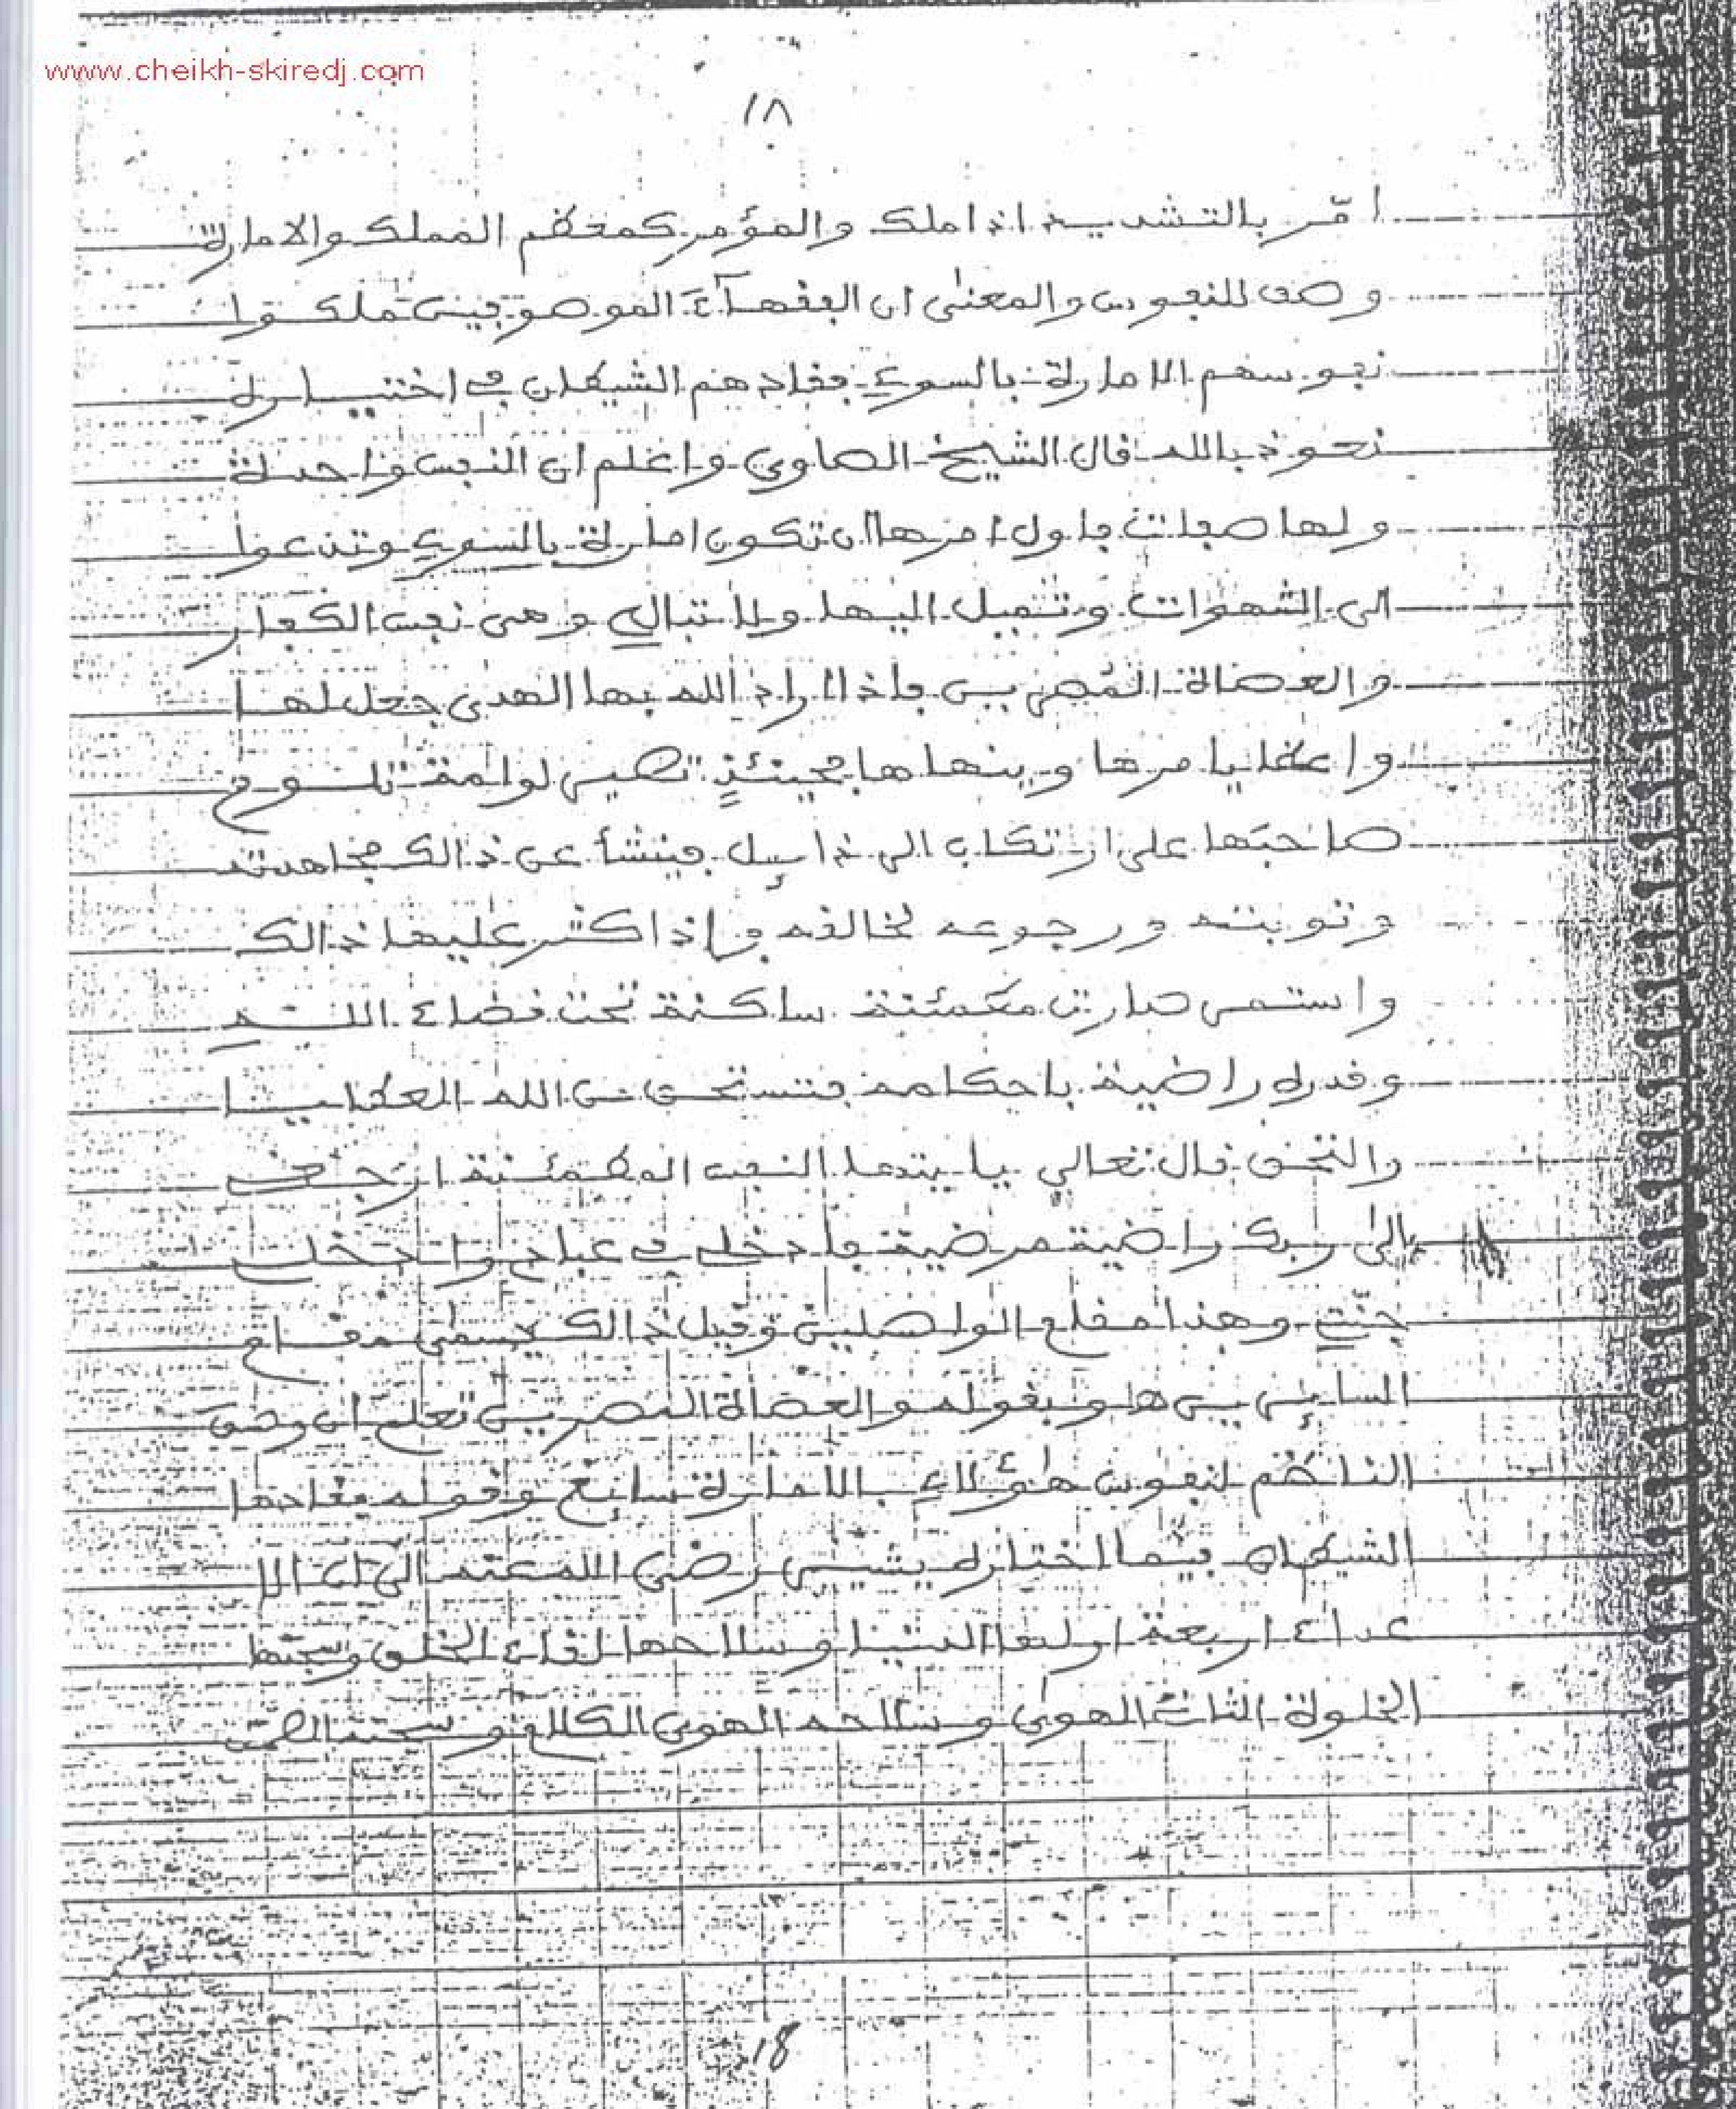 www.cheikh-skiredj.com
١٨
امّر بالتشديد اذا ملك والمؤمر كمعظم المملك والامارة
وصف للنفوس والمعنى ان الفقهآءَ الموصوفين ملكوا
نفوسهم الامارة بالسوء فقادهم الشيطان في اختياره
نعوذ بالله قال الشيخ الصاوي واعلم ان النفس واحدة
ولها صفات فاول امرها ان تكون امارة بالسوء وتدعوا
الى الشهوات وتميل اليها ولا تبالي وهى نفس الكفار
والعصاة المصرين فاذا اراد الله بها الهدى جعل لها
واعظا يامرها وينهاها فحينئذٍ تصير لوامة تلوم
صاحبها على ارتكاب الرذايل فينشأ عن ذالك مجاهدته
وتوبته ورجوعه لخالقه وإذا كثر عليها ذالك
واستمر صارت مطمئنة ساكنة تحت قضاء الله
وقدره راضية باحكامه فتستحق من الله العطايا
والتحف قال تعالى يايتها النفس المطمئنة ارجعي
إلى ربك راضية مرضية فادخلي في عبادي وادخلي
جنّتي وهذا مقام الواصلين وقبل ذالك يسمى مقام
السايرين وبقوله والعصاة المصرين تعلم ان وصف
الناظم لنفوس هؤلاء بالامارة سايغ وقوله فقادها
الشيطان فيما اختاره يشير رضي الله عنه الى ان الا
عداء اربعة اولها الدنيا وسلاحها لقاء الخلق وسجنها
الخلوة الثاني الهوى وسلاحه الكلام وسجنه الصمت
18